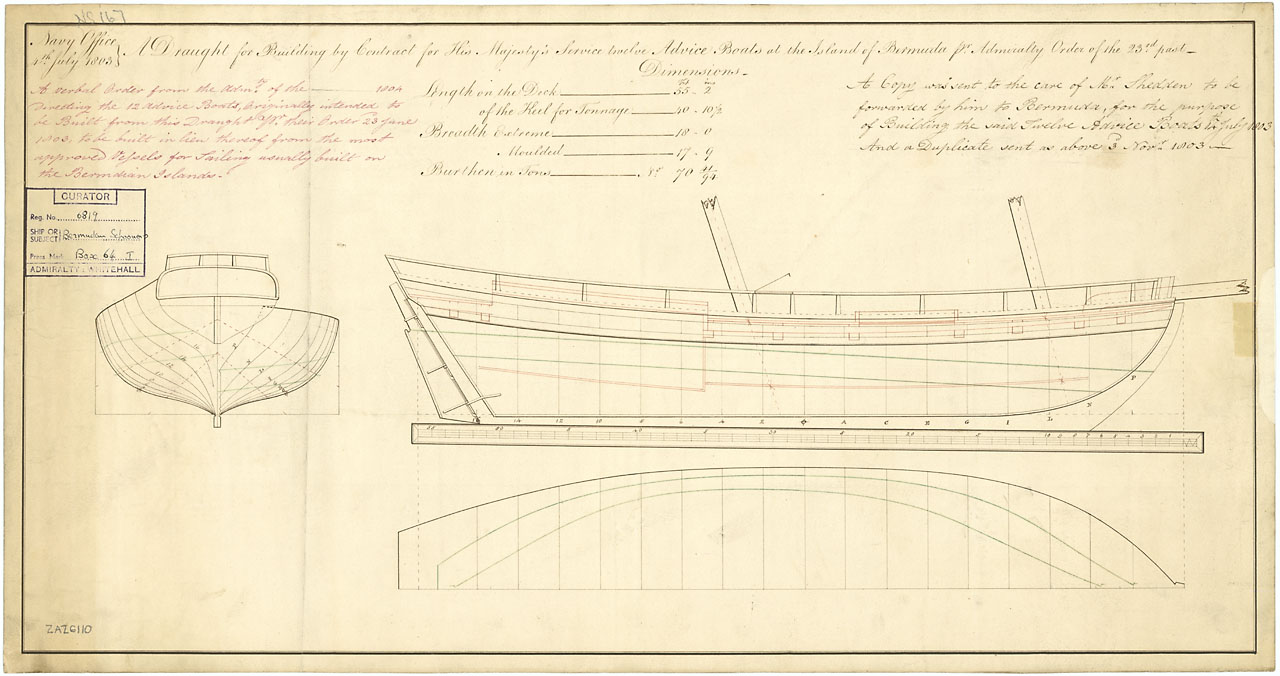 No 167
Navy Office
4th July 1803
A Draught for Building by Contract for His Majesty's Service twelve Advice Boats at the Island of Bermuda pr. Admiralty Order of the 23rd past
Dimensions
Ft In
Length on the Deck 55 - 2
of the Keel for Tonnage 40 - 10½
Breadth Extreme 18 - 0
Moulded 17 - 9
Burthen in Tons No 70
A verbal Order from the Admty of the 1804
Directing the 12 Advice Boats, Originally intended to
be Built from this Draught pr. their Order 23 June
1803, to be built in lieu thereof from the most
approved Vessels for Sailing usually built on
the Bermudian Islands.
A Copy was sent to the care of Mr. Shedden to be
forwarded by him to Bermuda, for the purpose
of Building the said Twelve Advice Boats July 1803
And a Duplicate sent as above 3d Novr. 1803
CURATOR
Reg. No. 6819
SHIP OR SUBJECT Bermudian Schooner
Press Mark Box 64 I
ADMIRALTY WHITEHALL
ZAZ6110